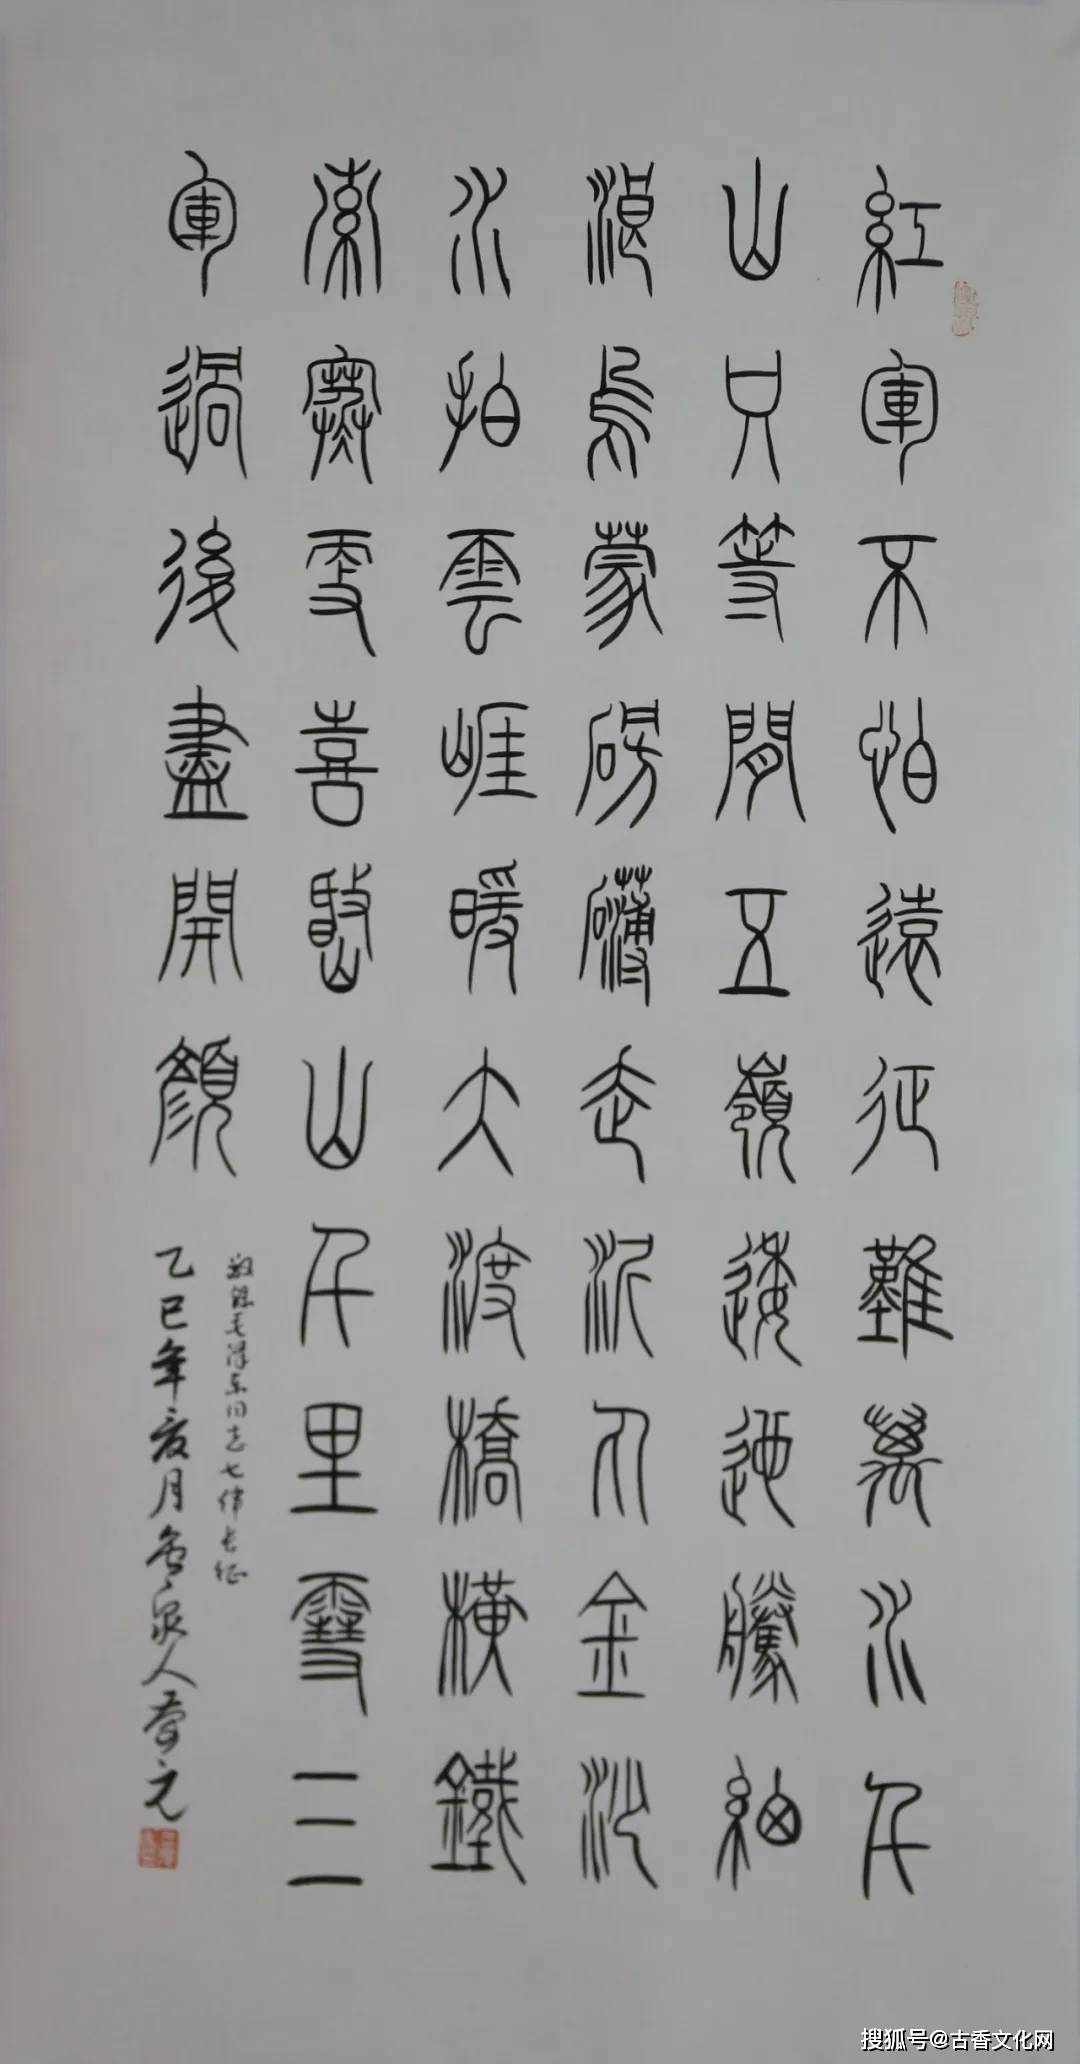 紅軍不怕遠征難萬水千
山只等閒五嶺逶迤騰細
浪烏蒙磅礴走泥丸金沙
水拍雲崖暖大渡橋橫鐵
索寒更喜岷山千里雪三
軍過後盡開顏
敬錄毛澤东同志七律长征
乙巳年 月 泉人 元
搜狐号@古香文化网